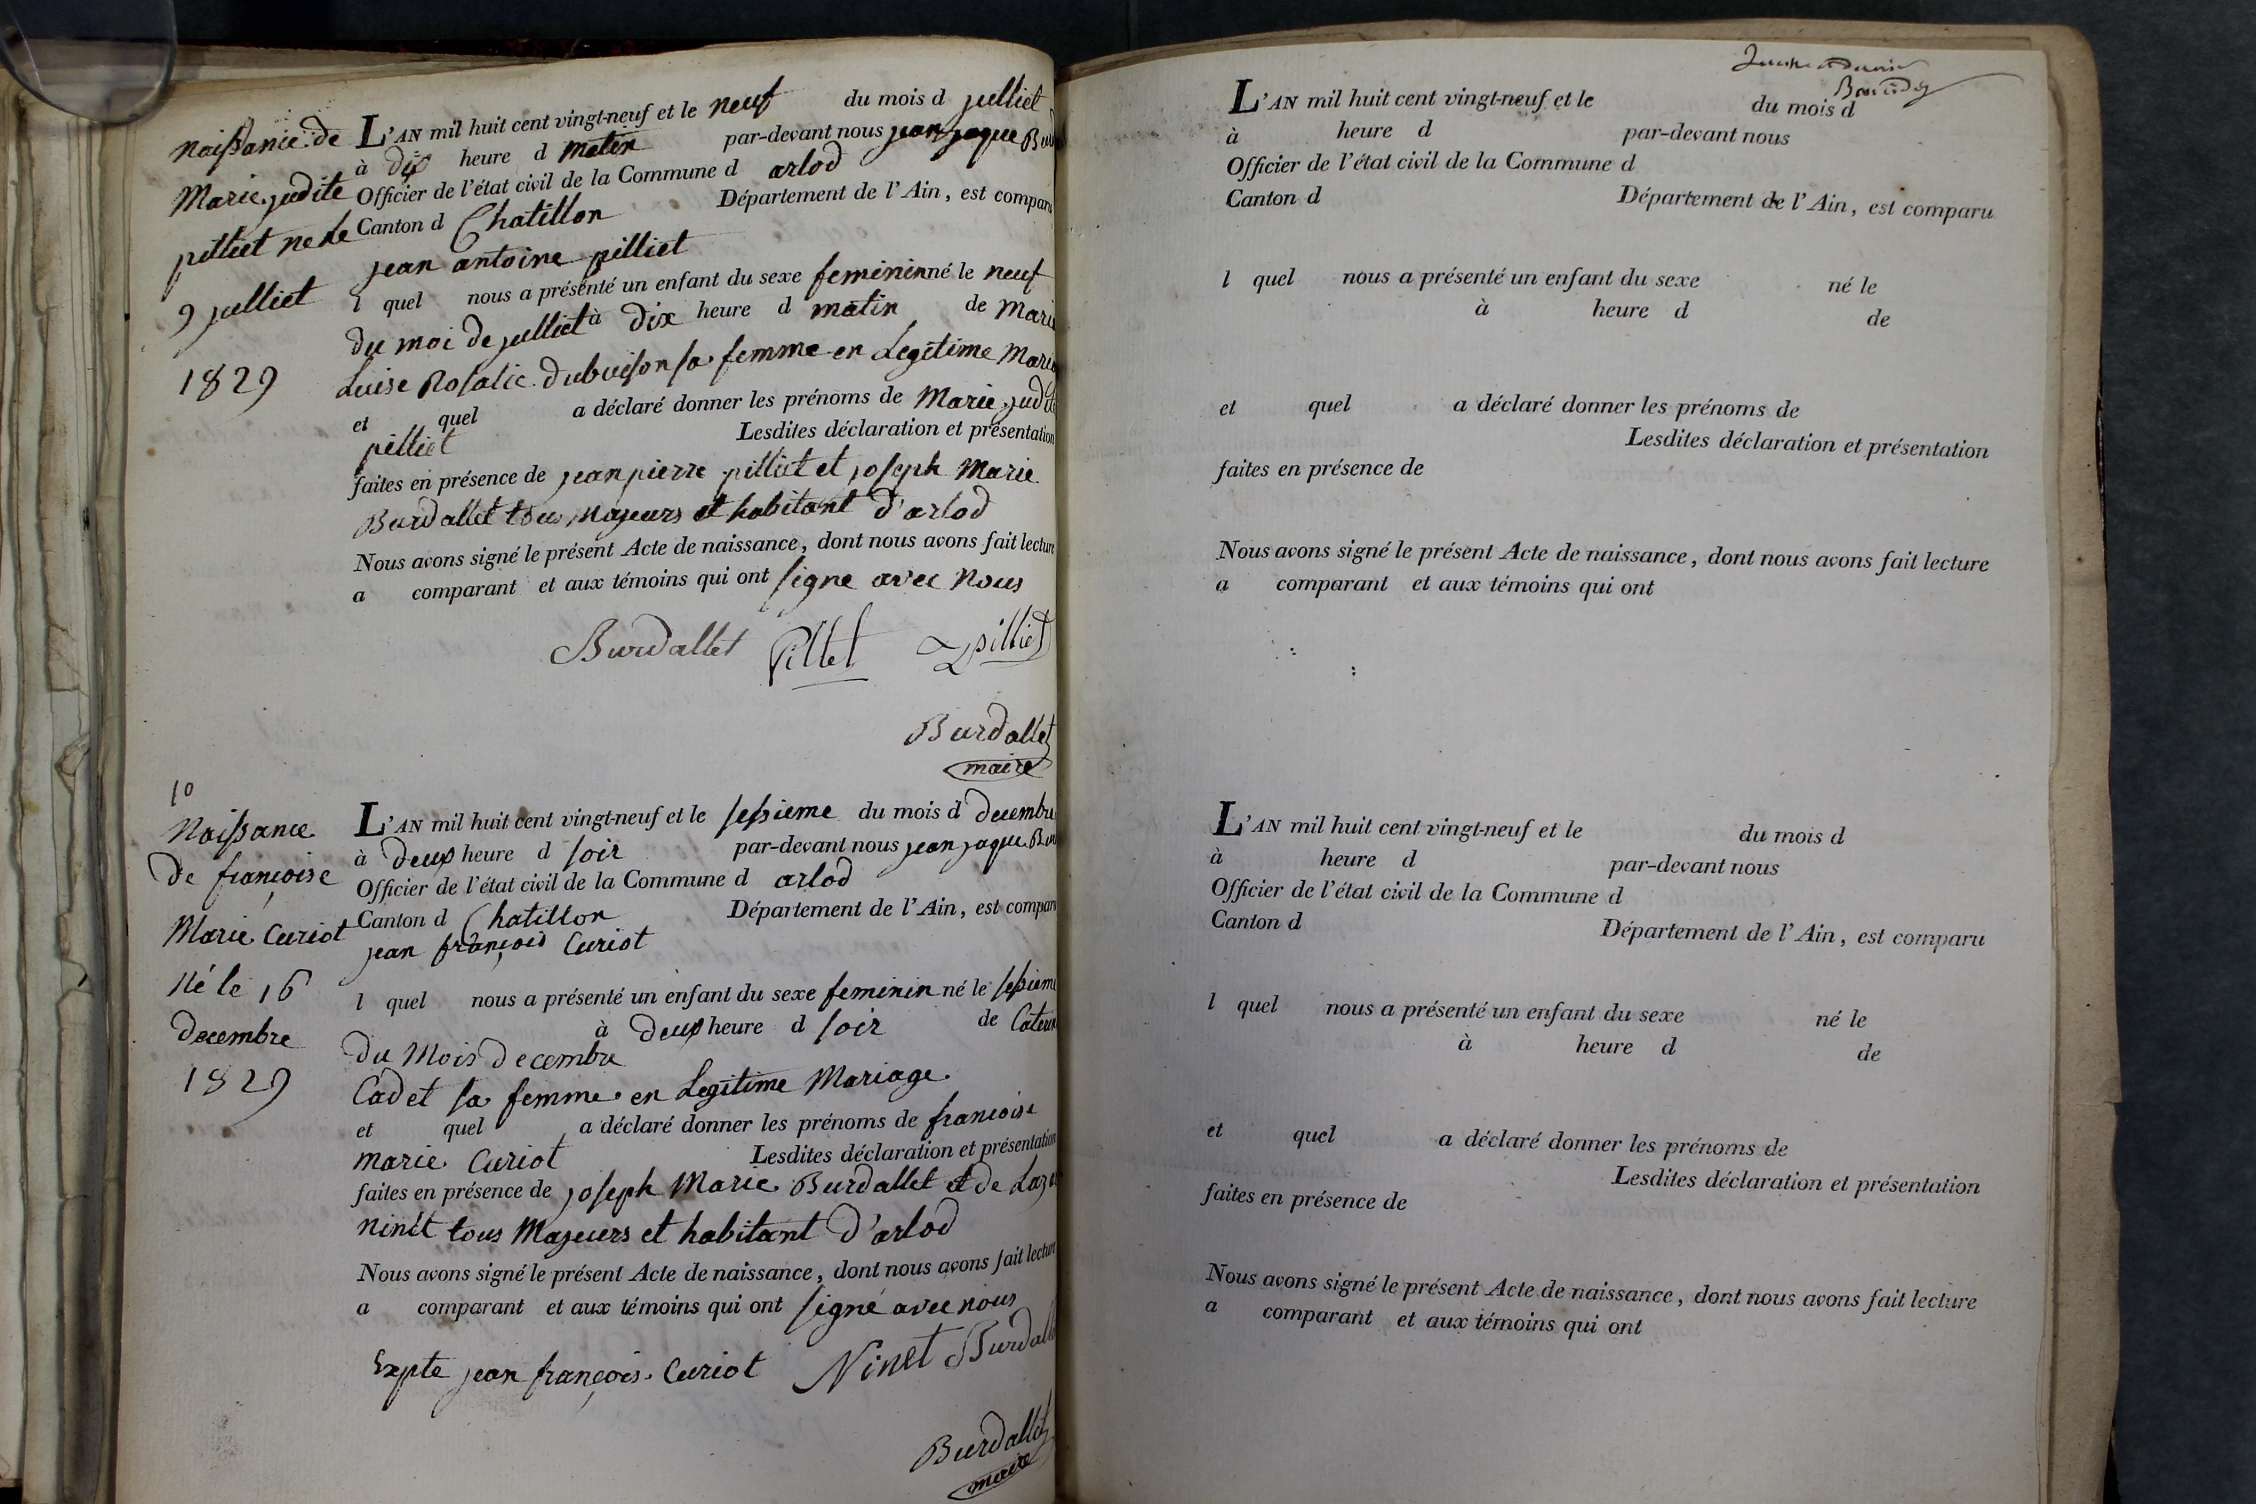 Naissance de
Marie judite
pilliet né le
9 julliet
1829
L'AN mil huit cent vingt-neuf et le neuf du mois d julliet
à dix heure d matin par-devant nous jean jaque Burd
Officier de l'état civil de la Commune d arlod
Canton d Chatillon Département de l'Ain, est comparu
jean antoine pilliet
l quel nous a présenté un enfant du sexe feminin né le neuf
du moi de julliet à dix heure d matin de Marie
Luise Rosalie Dubuison sa femme en Legitime Maria
et quel a déclaré donner les prénoms de Marie judite
pilliet Lesdites déclaration et présentation
faites en présence de jean pierre pilliet et joseph Marie
Burdallet tous Majeurs et habitant d'arlod
Nous avons signé le présent Acte de naissance, dont nous avons fait lecture
a comparant et aux témoins qui ont signe avec Nous
Burdallet Pillet pilliet
Burdallet
maire
10
Naissance
de francoise
Marie Curiot
Né le 16
decembre
1829
L'AN mil huit cent vingt-neuf et le sesieme du mois d decembre
à deux heure d soir par-devant nous jean jaque Bur
Officier de l'état civil de la Commune d arlod
Canton d Chatillon Département de l'Ain, est comparu
jean françois Curiot
l quel nous a présenté un enfant du sexe feminin né le sesieme
du Mois decembre à deux heure d soir de Caterine
Cadet sa femme en Legitime Mariage
et quel a déclaré donner les prénoms de francoise
marie Curiot Lesdites déclaration et présentation
faites en présence de joseph Marie Burdallet et de Laza
ninet tous Majeurs et habitant d'arlod
Nous avons signé le présent Acte de naissance, dont nous avons fait lecture
a comparant et aux témoins qui ont signé avec nous
Expte jean françois Curiot Ninet Burdallet
Burdallet
maire
L'AN mil huit cent vingt-neuf et le du mois d
à heure d par-devant nous
Officier de l'état civil de la Commune d
Canton d Département de l'Ain, est comparu
l quel nous a présenté un enfant du sexe né le
à heure d de
et quel a déclaré donner les prénoms de
Lesdites déclaration et présentation
faites en présence de
Nous avons signé le présent Acte de naissance, dont nous avons fait lecture
a comparant et aux témoins qui ont
L'AN mil huit cent vingt-neuf et le du mois d
à heure d par-devant nous
Officier de l'état civil de la Commune d
Canton d Département de l'Ain, est comparu
l quel nous a présenté un enfant du sexe né le
à heure d de
et quel a déclaré donner les prénoms de
Lesdites déclaration et présentation
faites en présence de
Nous avons signé le présent Acte de naissance, dont nous avons fait lecture
a comparant et aux témoins qui ont